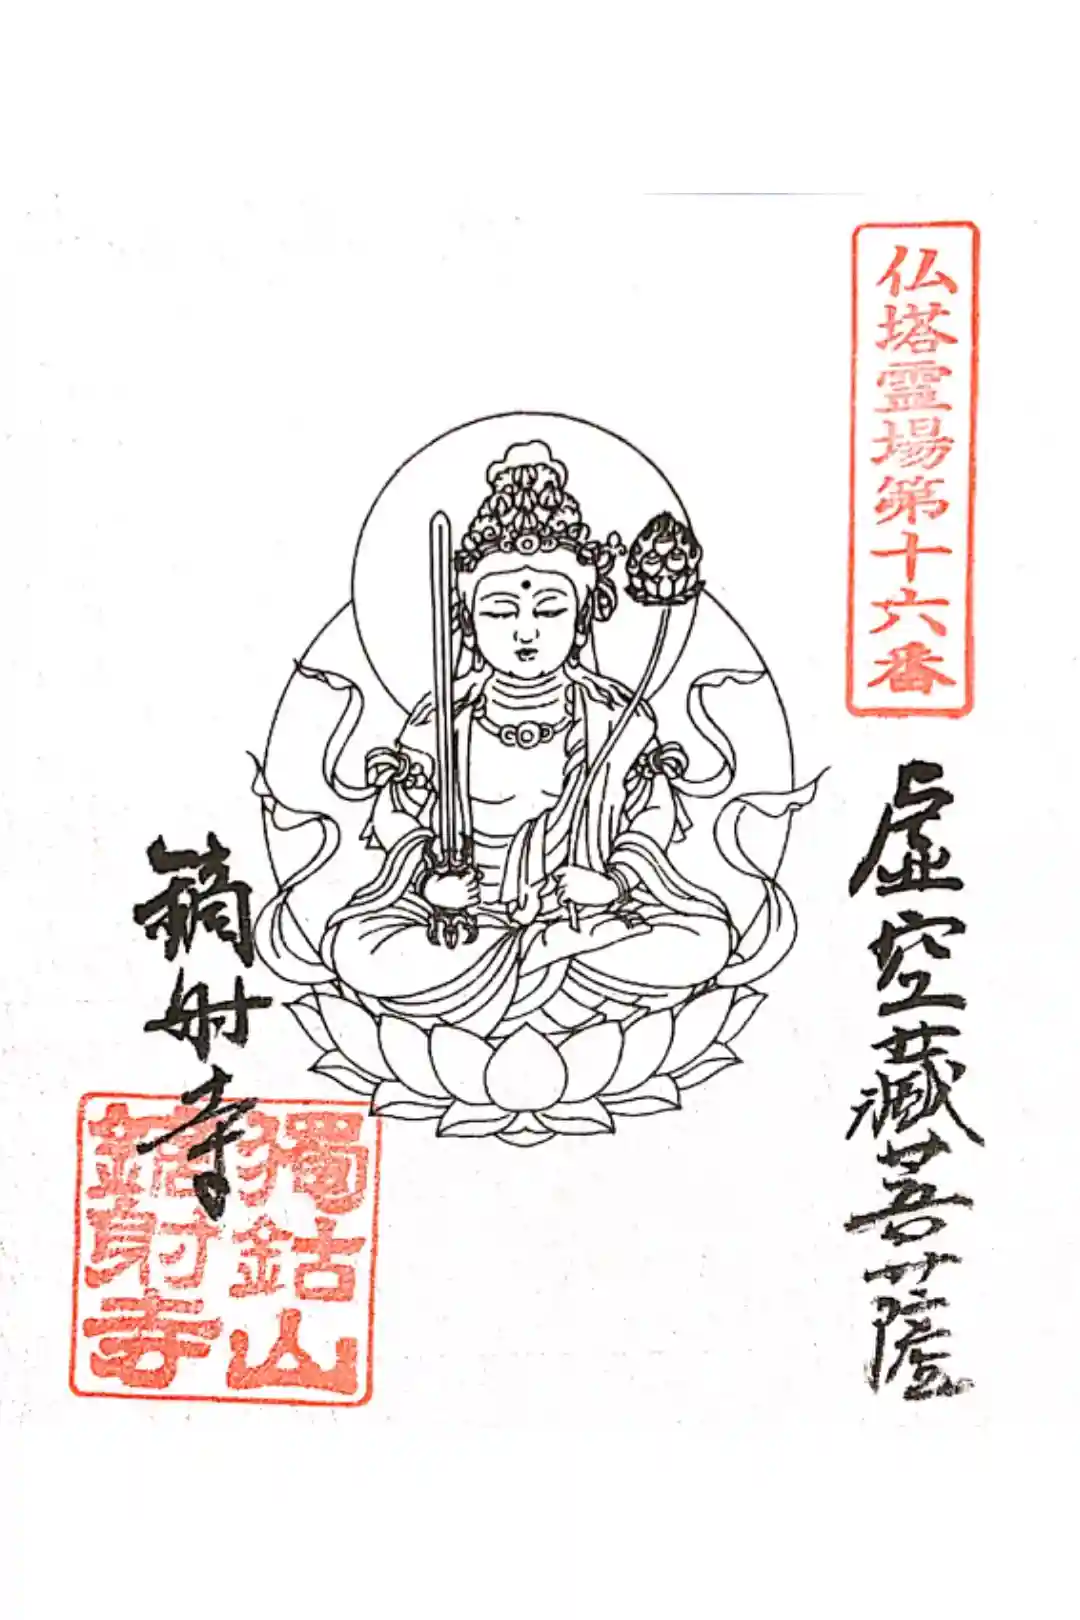 仏塔霊場第十六番
虚空藏菩薩
鏑射寺
獨鈷山
鏑射寺